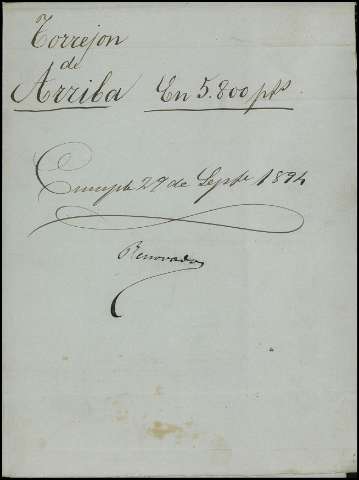 Torrejon
de
Arriba En 5.800 pts
Cumple 29 de Septe 1894
Renovado